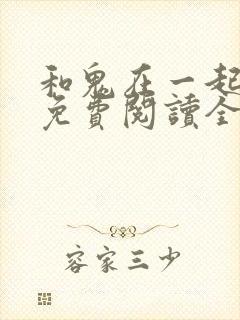 和鬼在一起
免費閱讀全
容家三少